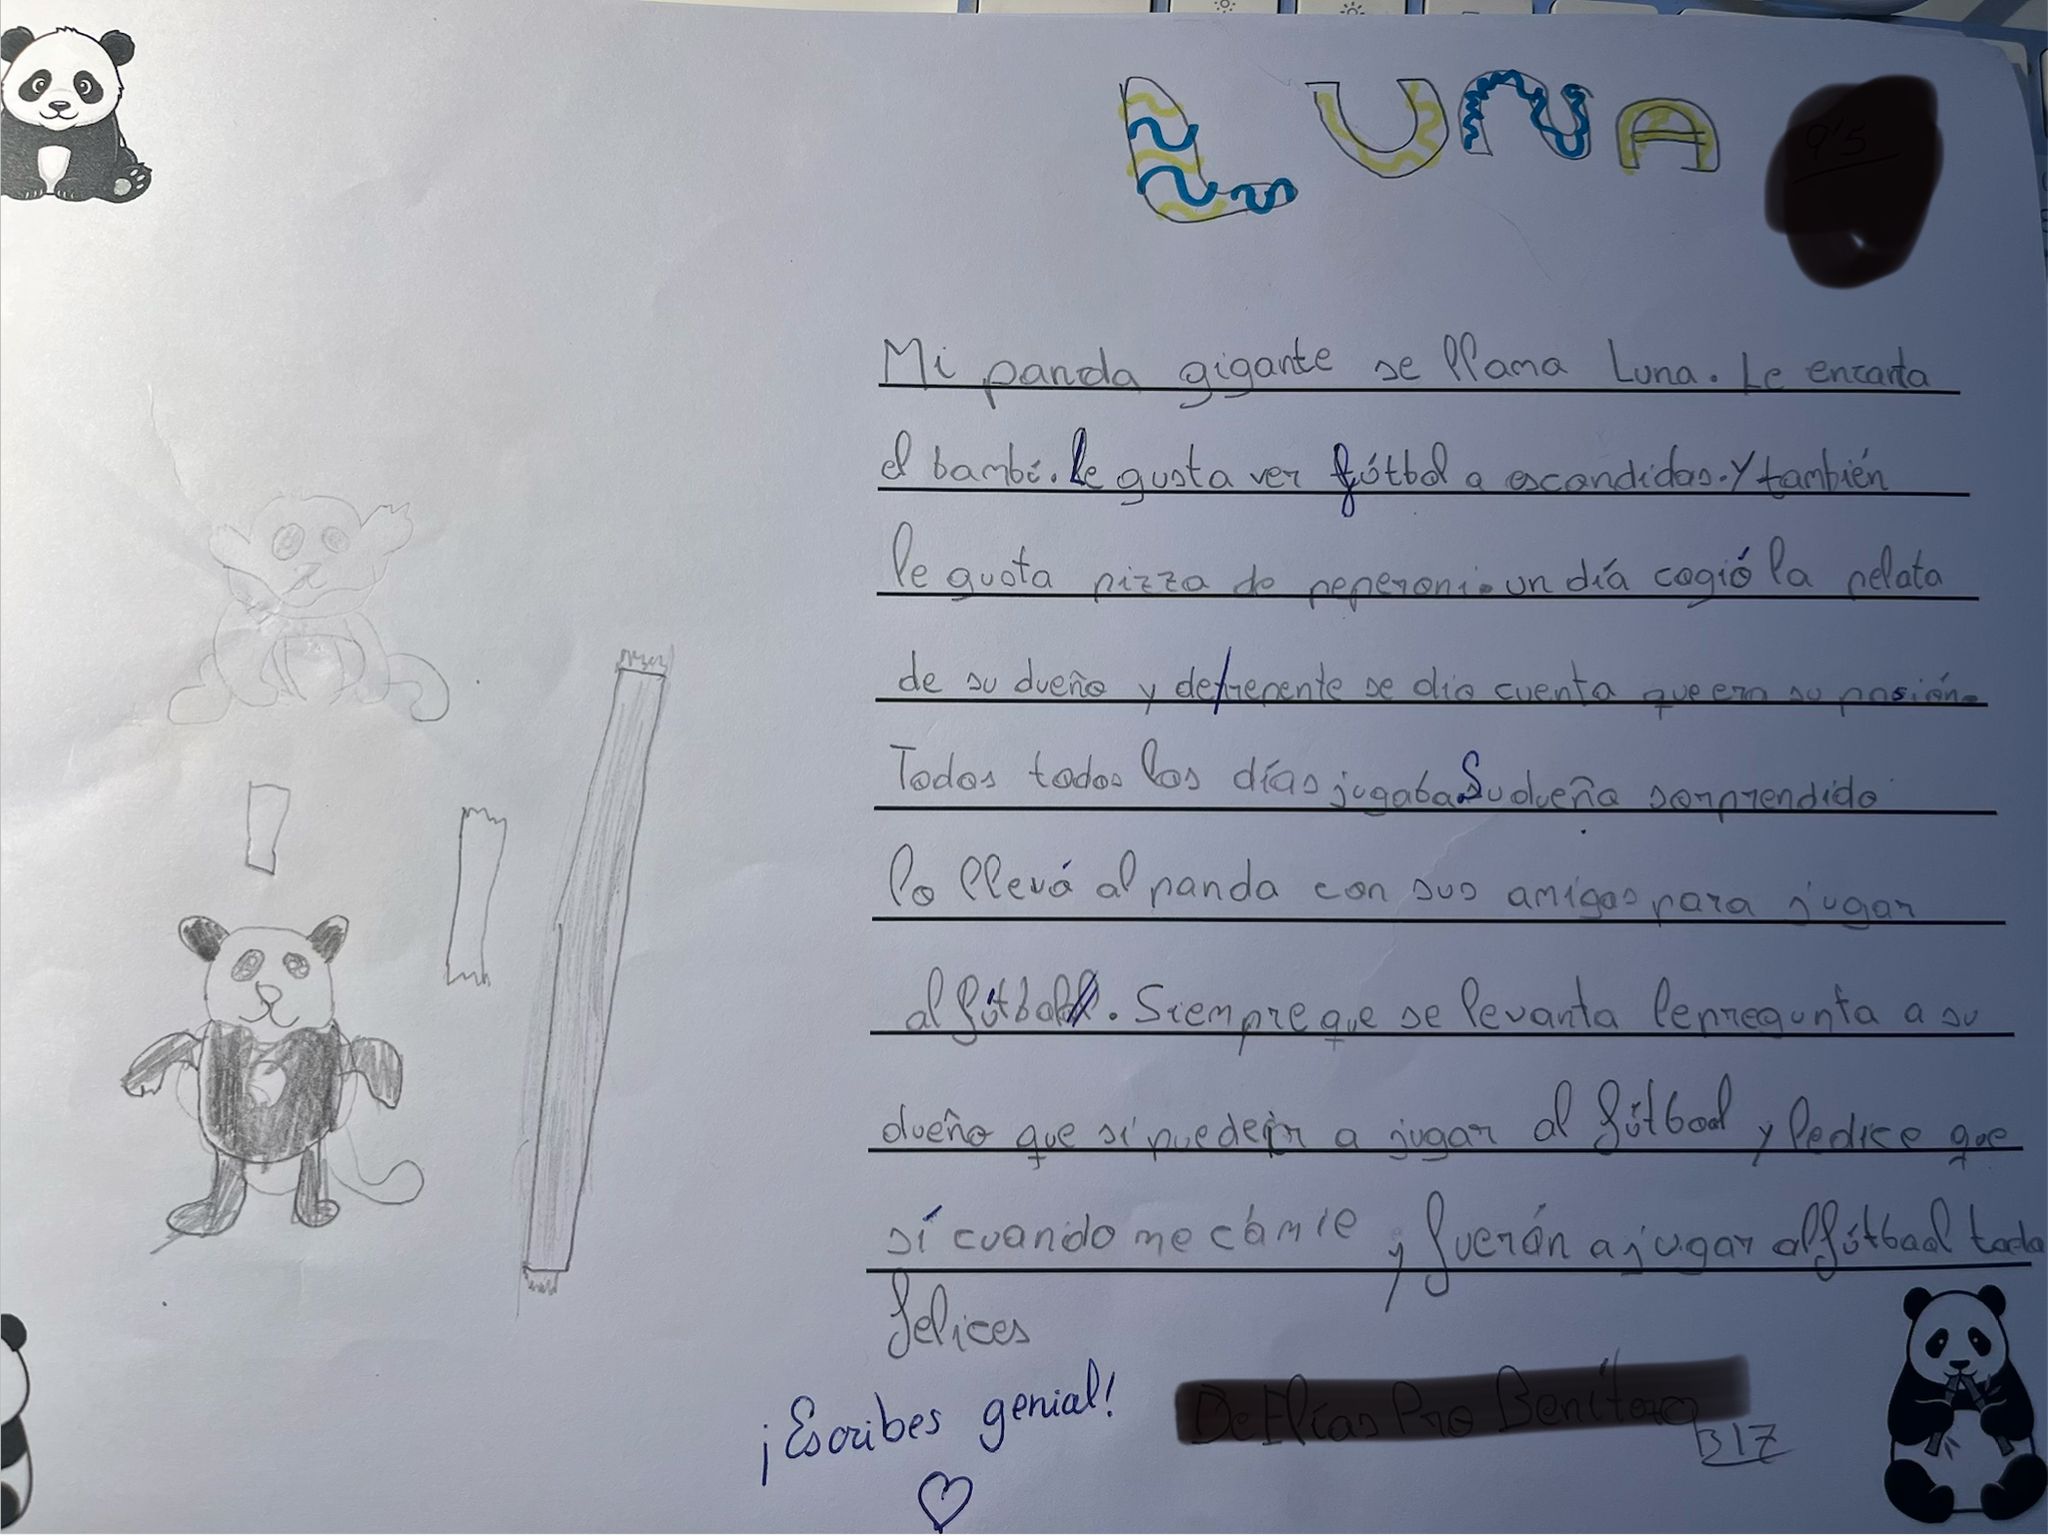 LUNA
Mi panda gigante se llama Luna. Le encanta
el bambú. Le gusta ver fútbol a escondidas. Y también
le gusta pizza de peperoni. un día cogió la pelota
de su dueño y de/repente se dio cuenta que era su pasión.
Todos todos los días jugaba Su dueño sorprendido
lo llevó al panda con sus amigos para jugar
al fútbol. Siempre que se levanta le pregunta a su
dueño que si puede ir a jugar al fútbol y le dice que
sí cuando me cámie y fuerón a jugar al fútbol
felices
¡Escribes genial!